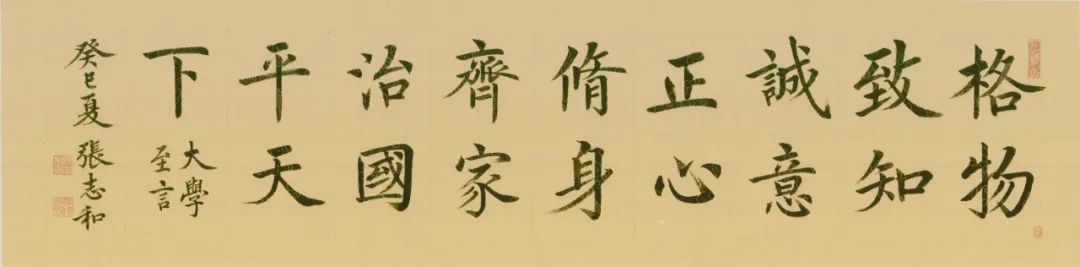 格物
致知
誠意
正心
脩身
齊家
治國
平天
下
大學
至言
癸巳夏 張志和